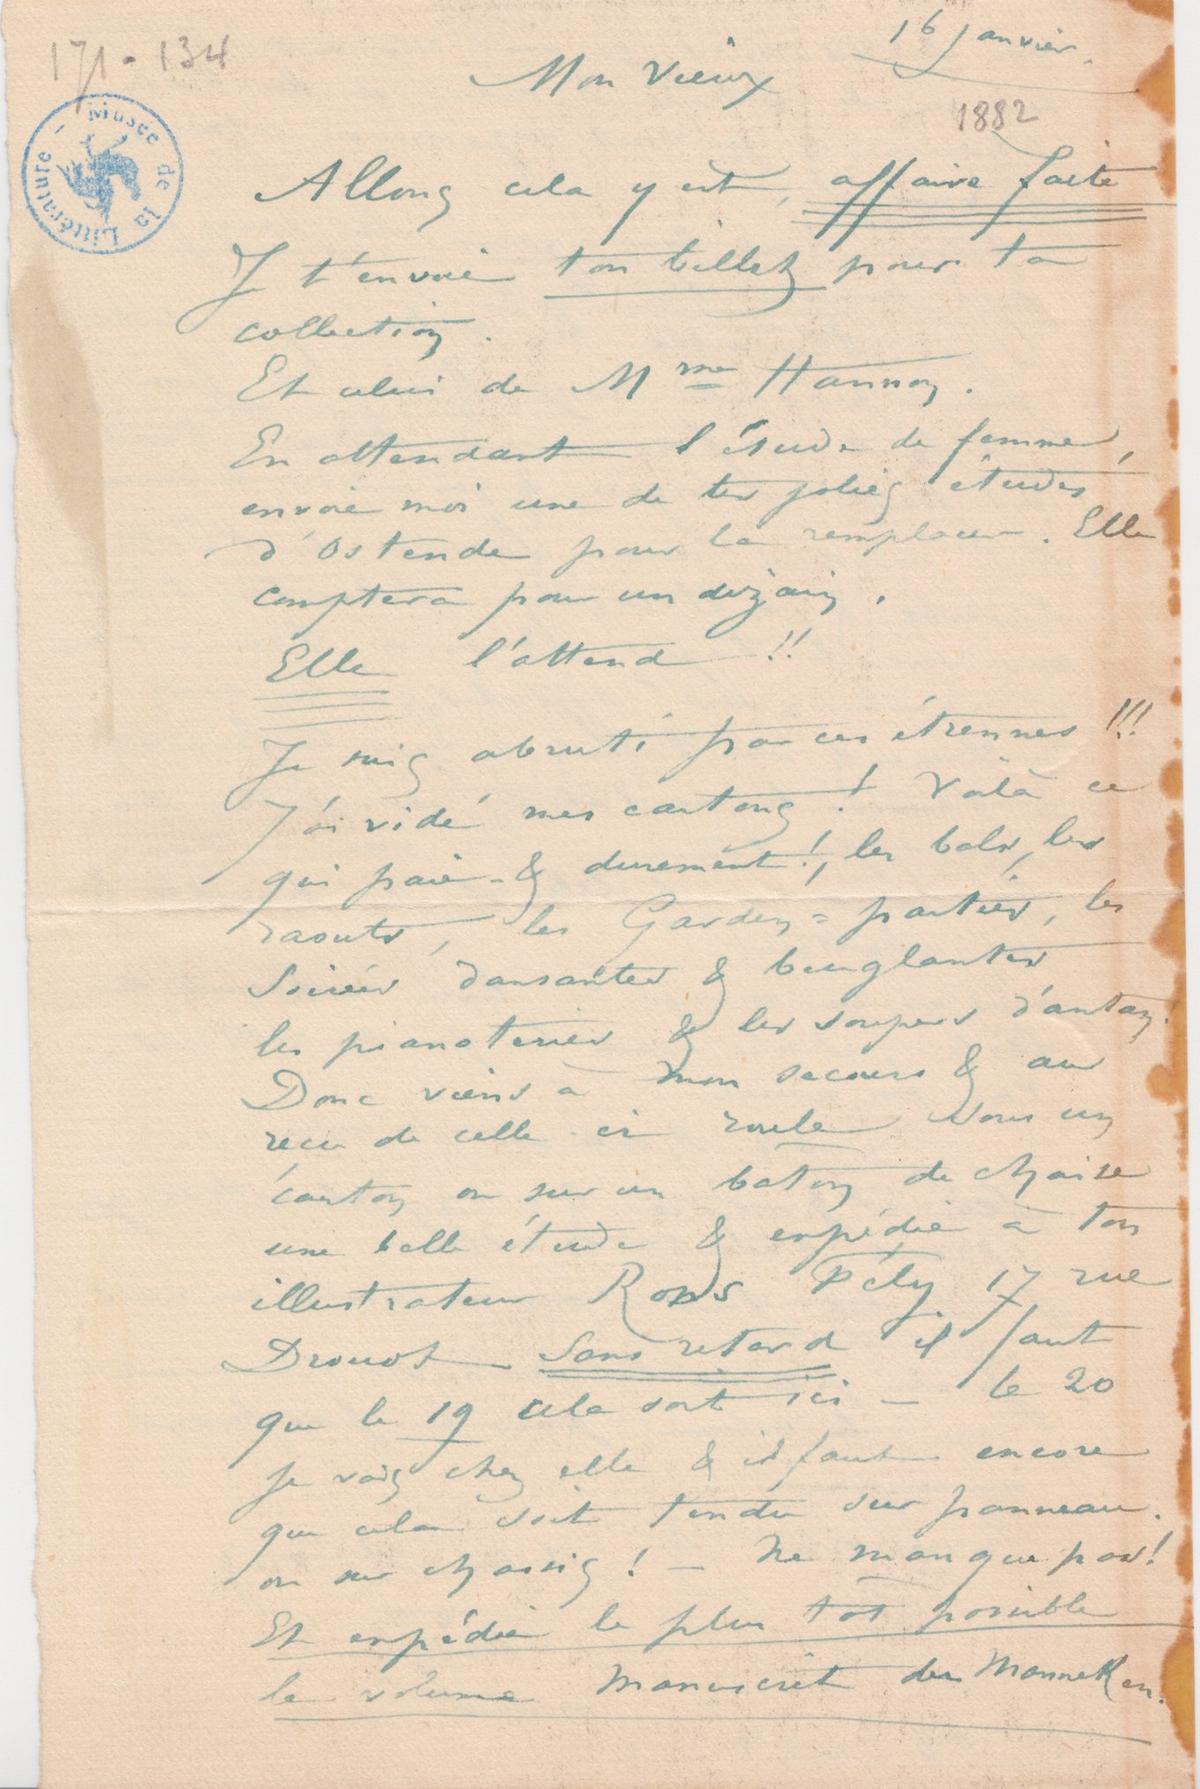 171-134
16 janvier.
Mon Vieux
1882
Musée de la Littérature -
Allons cela y est, affaire faite
Je t'envoie ton billet pour ta
collection.
Et celui de Mme Hannon.
En attendant l'étude de femme,
envoie moi une de tes jolies études
d'Ostende pour la remplacer. Elle
comptera pour un dizain.
Elle l'attend !!
Je suis abruti par ces étrennes !!!
J'ai vidé mes cartons ! Voilà ce
qui paie - & durement !, les bals, les
raouts, les Garden=parties, les
Soirées dansantes & beuglantes
les pianoteries & les soupers d'antan.
Donc viens à mon secours & au
reçu de celle-ci roule sous un
carton ou sur un bâton de chaise
une belle étude & expédie à ton
illustrateur Rops Fély 17 rue
Drouot - Sans retard il faut
que le 19 cela soit ici - le 20
je vais chez elle & il faut encore
que cela soit tendu sur panneau.
ou sur chassis ! - Ne manque pas !
Et expédie le plus tôt possible
le volume manuscrit du MonneKen.